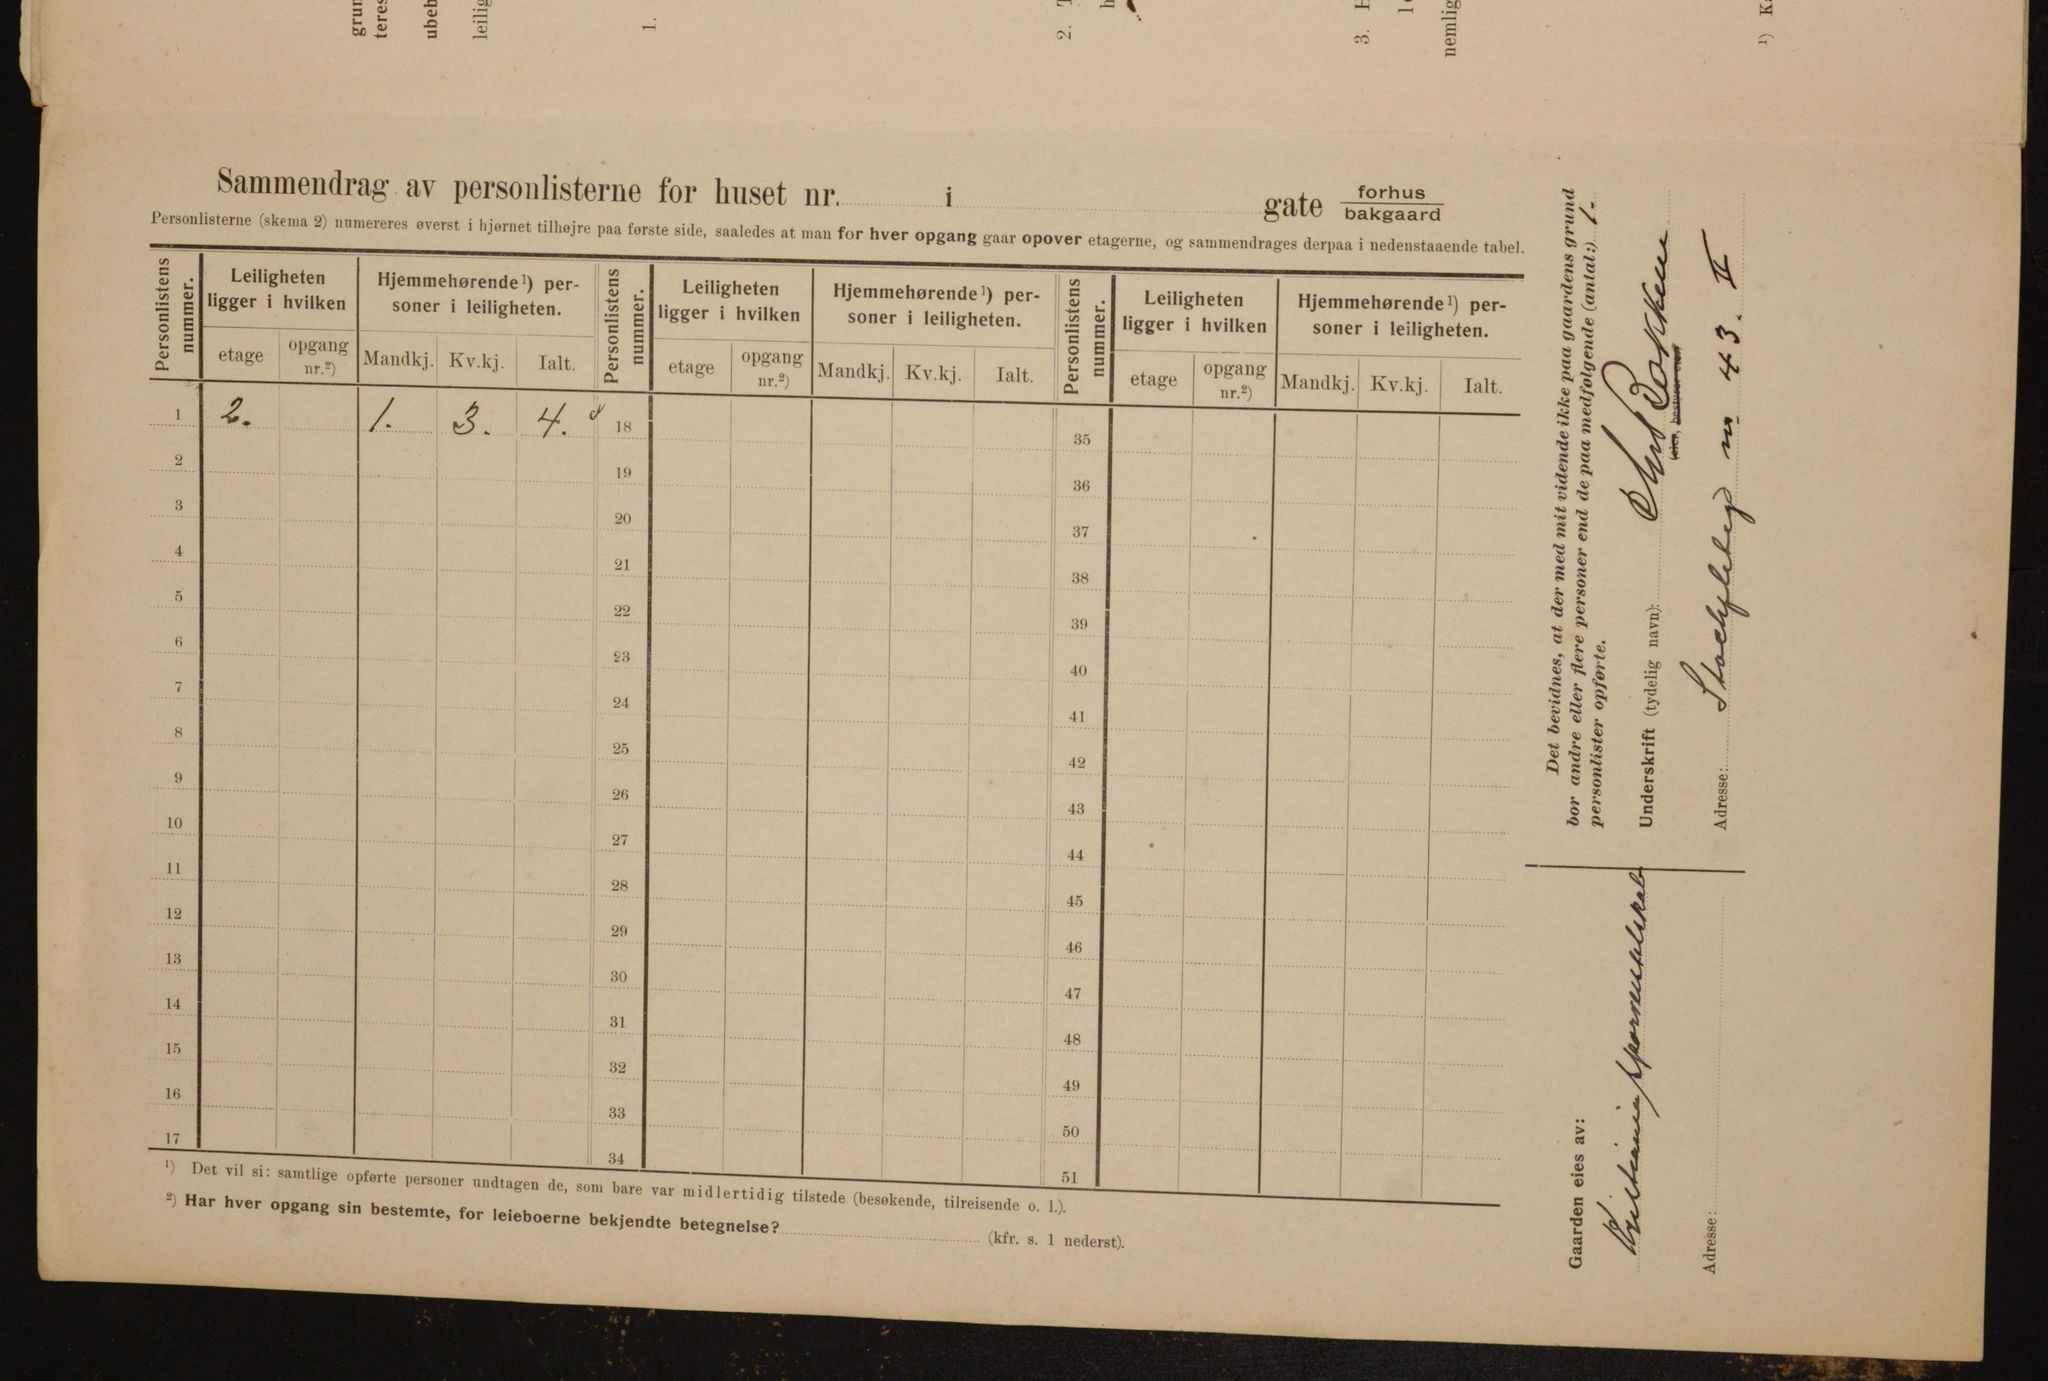 grun
teres
ubeb
leilig
1.
2. T
h
3. H
10
nemlig
¹) Ka
Sammendrag av personlisterne for huset nr. i gate forhus
bakgaard
Personlisterne (skema 2) numereres øverst i hjørnet tilhøjre paa første side, saaledes at man for hver opgang gaar opover etagerne, og sammendrages derpaa i nedenstaaende tabel.
Personlistens nummer. Leiligheten ligger i hvilken Hjemmehørende¹) personer i leiligheten. Personlistens nummer. Leiligheten ligger i hvilken Hjemmehørende¹) personer i leiligheten. Personlistens nummer. Leiligheten ligger i hvilken Hjemmehørende¹) personer i leiligheten.
etage opgang nr.²) Mandkj. Kv.kj. Ialt. etage opgang nr.²) Mandkj. Kv.kj. Ialt. etage opgang nr.²) Mandkj. Kv.kj. Ialt.
1 2. 1. 3. 4. 18 35
2 19 36
3 20 37
4 21 38
5 22 39
6 23 40
7 24 41
8 25 42
9 26 43
10 27 44
11 28 45
12 29 46
13 30 47
14 31 48
15 32 49
16 33 50
17 34 51
¹) Det vil si: samtlige opførte personer undtagen de, som bare var midlertidig tilstede (besøkende, tilreisende o. l.).
²) Har hver opgang sin bestemte, for leieboerne bekjendte betegnelse? (kfr. s. 1 nederst).
Det bevidnes, at der med mit vidende ikke paa gaardens grund
bor andre eller flere personer end de paa medfølgende (antal:) 1.
personlister opførte.
Underskrift (tydelig navn): Bakken
Adresse: m 43. II
Gaarden eies av:
Kristiania sporveisselskab
Adresse: